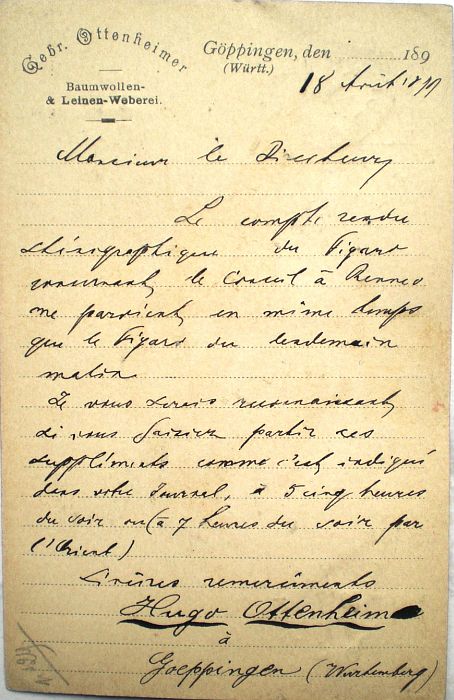 Gebr. Ottenheimer
Baumwollen-
& Leinen-Weberei.
Göppingen, den 189
(Württ.)
18 Août 1899
Monsieur le Directeur,
Le compte rendu
sténographique du Figaro
concernant le Conseil à Rennes
me parvient en même temps
que le Figaro du lendemain
matin.
Je vous serais reconnaissant
si vous faisiez partir ces
suppléments comme c'est indiqué
dans votre Journal, à 5 cinq heures
du soir ou (à 7 heures du soir par
l'Orient)
Sincères remerciments
Hugo Ottenheimer
à
Goeppingen (Wurtemberg)